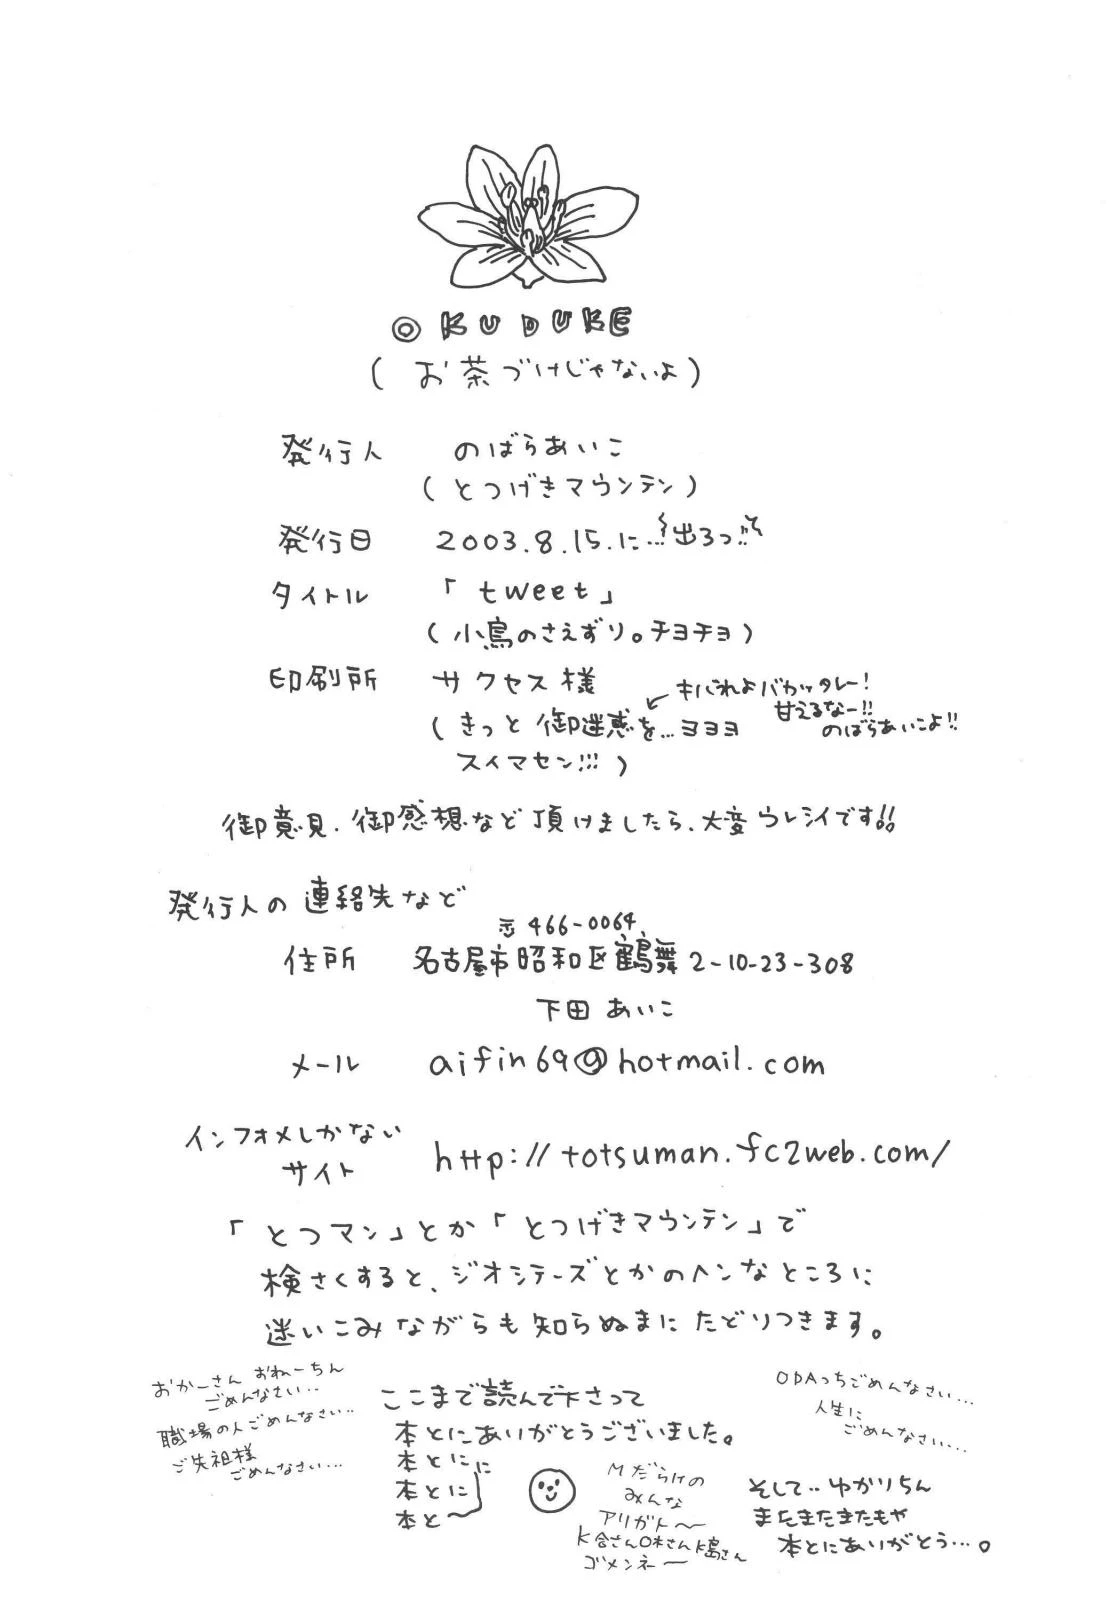 ◎KUDUKE
(お茶づけじゃないよ)
発行人 のばらあいこ
(とつげきマウンテン)
発行日 2003.8.15.に…出ろっ!!
タイトル 「tweet」
(小鳥のさえずり。チヨチヨ)
印刷所 サクセス様
(きっと御迷惑を…ヨヨヨ
スイマセン!!!)
←キバれよバカッタレー!
甘えるなー!!
のばらあいこよ!!
御意見.御感想など頂けましたら、大変ウレシイです!!
発行人の連絡先など
〒466-0064
住所 名古屋市昭和区鶴舞2-10-23-308
下田あいこ
メール aifin69@hotmail.com
インフォメしかない
サイト http://totsuman.fc2web.com/
「とつマン」とか「とつげきマウンテン」で
検さくすると、ジオシテーズとかのヘンなところに
迷いこみながらも知らぬまにたどりつきます。
おかーさん おねーちん
ごめんなさい…
職場の人ごめんなさい…
ご先祖様
ごめんなさい…
ここまで読んで下さって
本とにありがとうございました。
本とにに
本とに
本と〜
Mだらけの
みんな
アリガト〜
K合さんO木さんK島さん
ゴメンネ〜
ODAっちごめんなさい…
人生に
ごめんなさい…
そして…ゆかりちん
またまたまたもや
本とにありがとう…。